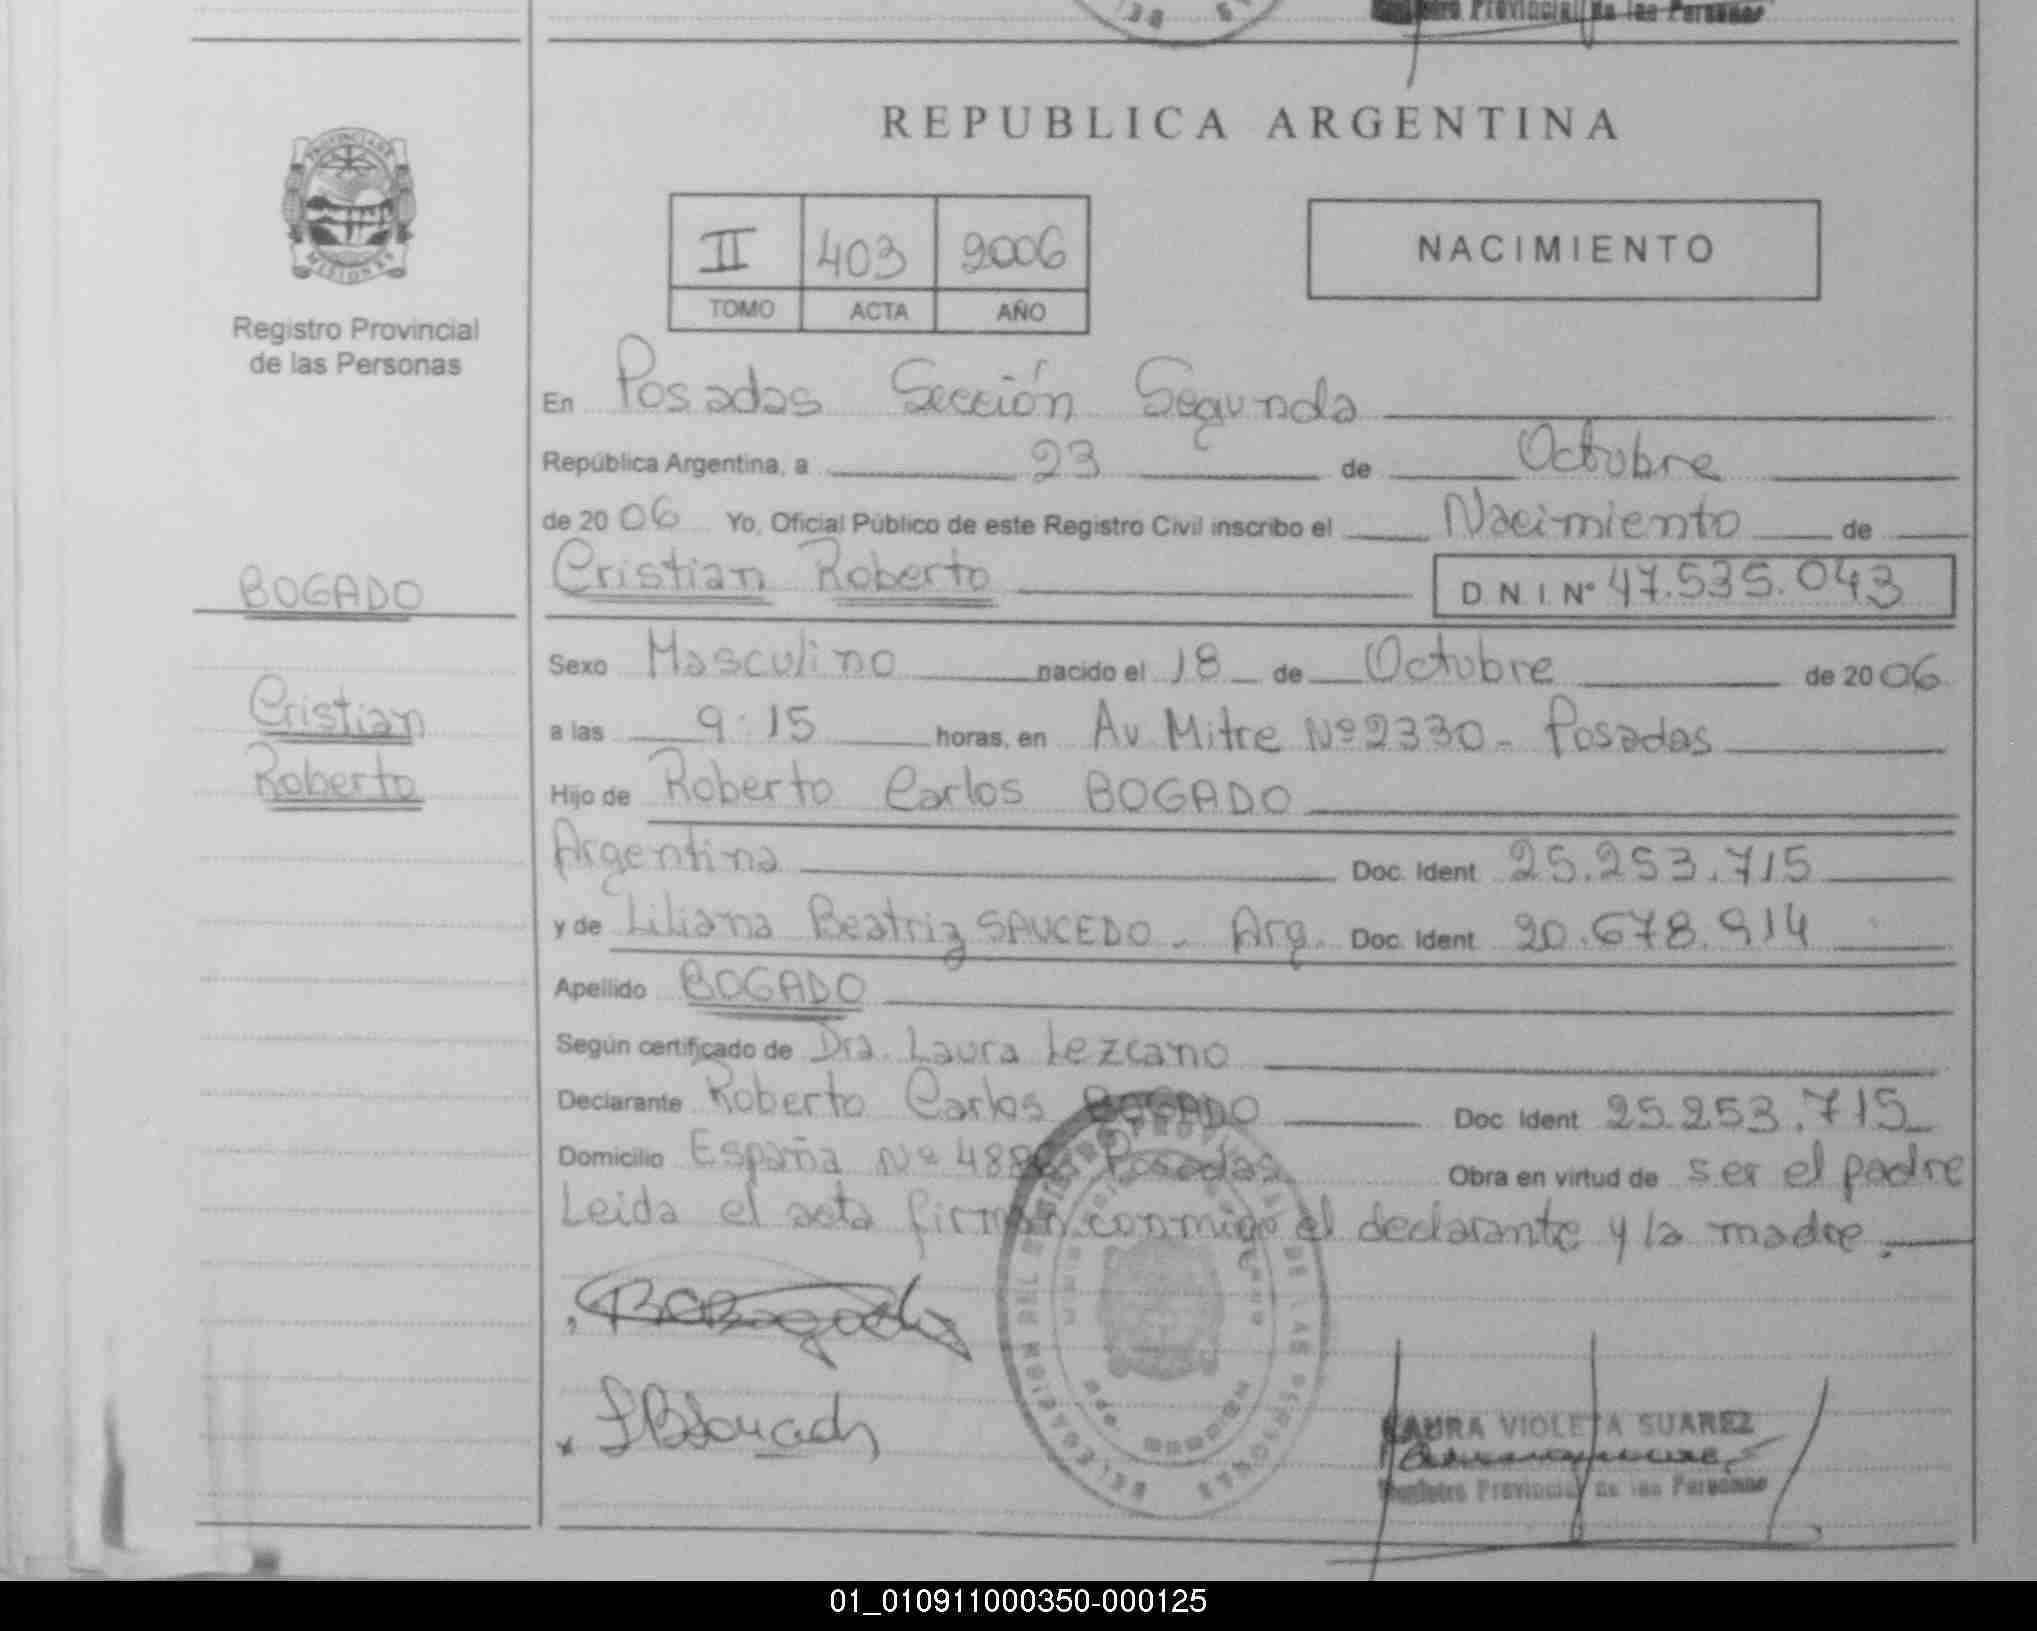 Registro Provincial de las Personas
REPUBLICA ARGENTINA
PROVINCIA DE
MISIONES
II 403 2006
TOMO ACTA AÑO
NACIMIENTO
Registro Provincial
de las Personas
En Posadas Sección Segunda
República Argentina, a 23 de Octubre
de 2006 Yo, Oficial Público de este Registro Civil inscribo el Nacimiento de
BOGADO
Cristian Roberto D.N.I. Nº 47.535.043
Sexo Masculino nacido el 18 de Octubre de 2006
Cristian
a las 9:15 horas, en Av Mitre Nº 2330 - Posadas
Roberto
Hijo de Roberto Carlos BOGADO
Argentina Doc. Ident 25.253.715
y de Liliana Beatriz SAUCEDO - Arg. Doc. Ident 20.678.914
Apellido BOGADO
Según certificado de Dra. Laura Lezcano
Declarante Roberto Carlos BOGADO Doc. Ident 25.253.715
Domicilio España Nº Posadas Obra en virtud de ser el padre
Leida el acta firman conmigo el declarante y la madre.
LAURA VIOLETA SUAREZ
Registro Provincial de las Personas
01_010911000350-000125